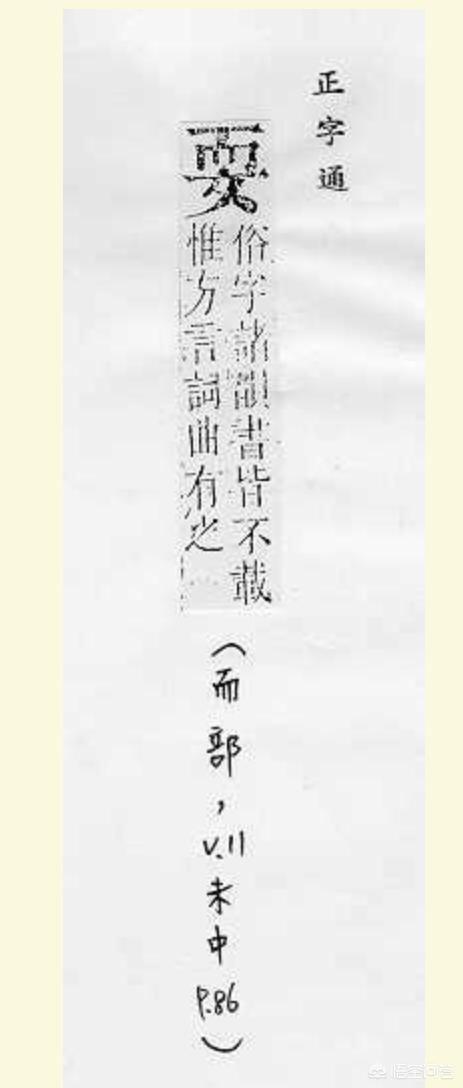 正字通
耍
俗字諸韻書皆不載
惟方言詞曲有之
(而部,V.11未中P.86)
悟空问答